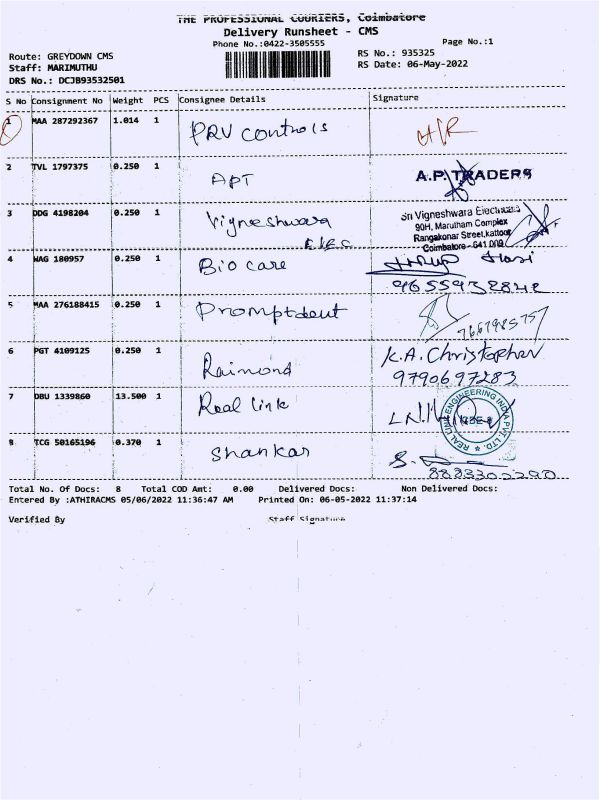 THE PROFESSIONAL COURIERS, Coimbatore
Delivery Runsheet - CMS
Phone No.:0422-3505555
Page No.:1
Route: GREYDOWN CMS
RS No.: 935325
Staff: MARIMUTHU
RS Date: 06-May-2022
DRS No.: DCJB93532501
S No Consignment No Weight PCS Consignee Details Signature
1 MAA 287292367 1.014 1 PRV controls
2 TVL 1797375 0.250 1 APT A.P. TRADERS
3 DDG 4198204 0.250 1 Vigneshwara Elec
Sri Vigneshwara Electricals
90H, Marutham Complex
Rangakonar Street,kattoor
Coimbatore - 641 009
4 WAG 180957 0.250 1 Bio care
9655932842
5 MAA 276188415 0.250 1 Promptdent
7667985757
6 PGT 4109125 0.250 1 Raimond K.A. Christopher
9790697283
7 DBU 1339860 13.500 1 Real link
REAL LINK ENGINEERING INDIA PVT. LTD.
8 TCG 50165196 0.370 1 Shankar
8883302290
Total No. Of Docs: 8 Total COD Amt: 0.00 Delivered Docs: Non Delivered Docs:
Entered By :ATHIRACMS 05/06/2022 11:36:47 AM Printed On: 06-05-2022 11:37:14
Verified By Staff Signature